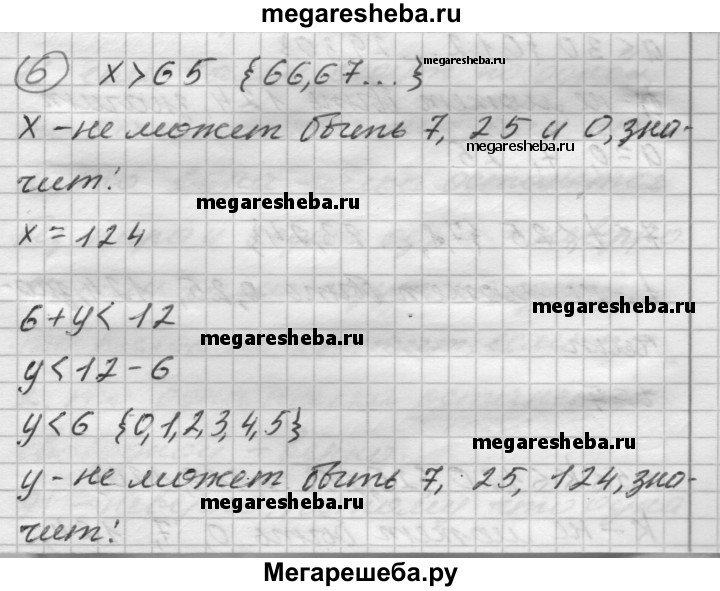 megaresheba.ru
6 x > 65 {66,67...}
megaresheba.ru
x - не может быть 7, 25 и 0, зна-
megaresheba.ru
чит!
megaresheba.ru
x = 124
megaresheba.ru
6 + y < 12
megaresheba.ru
y < 12 - 6
y < 6 {0,1,2,3,4,5}
megaresheba.ru
y - не может быть 7, 25, 124, зна-
megaresheba.ru
чит!
Мегарешеба.ру